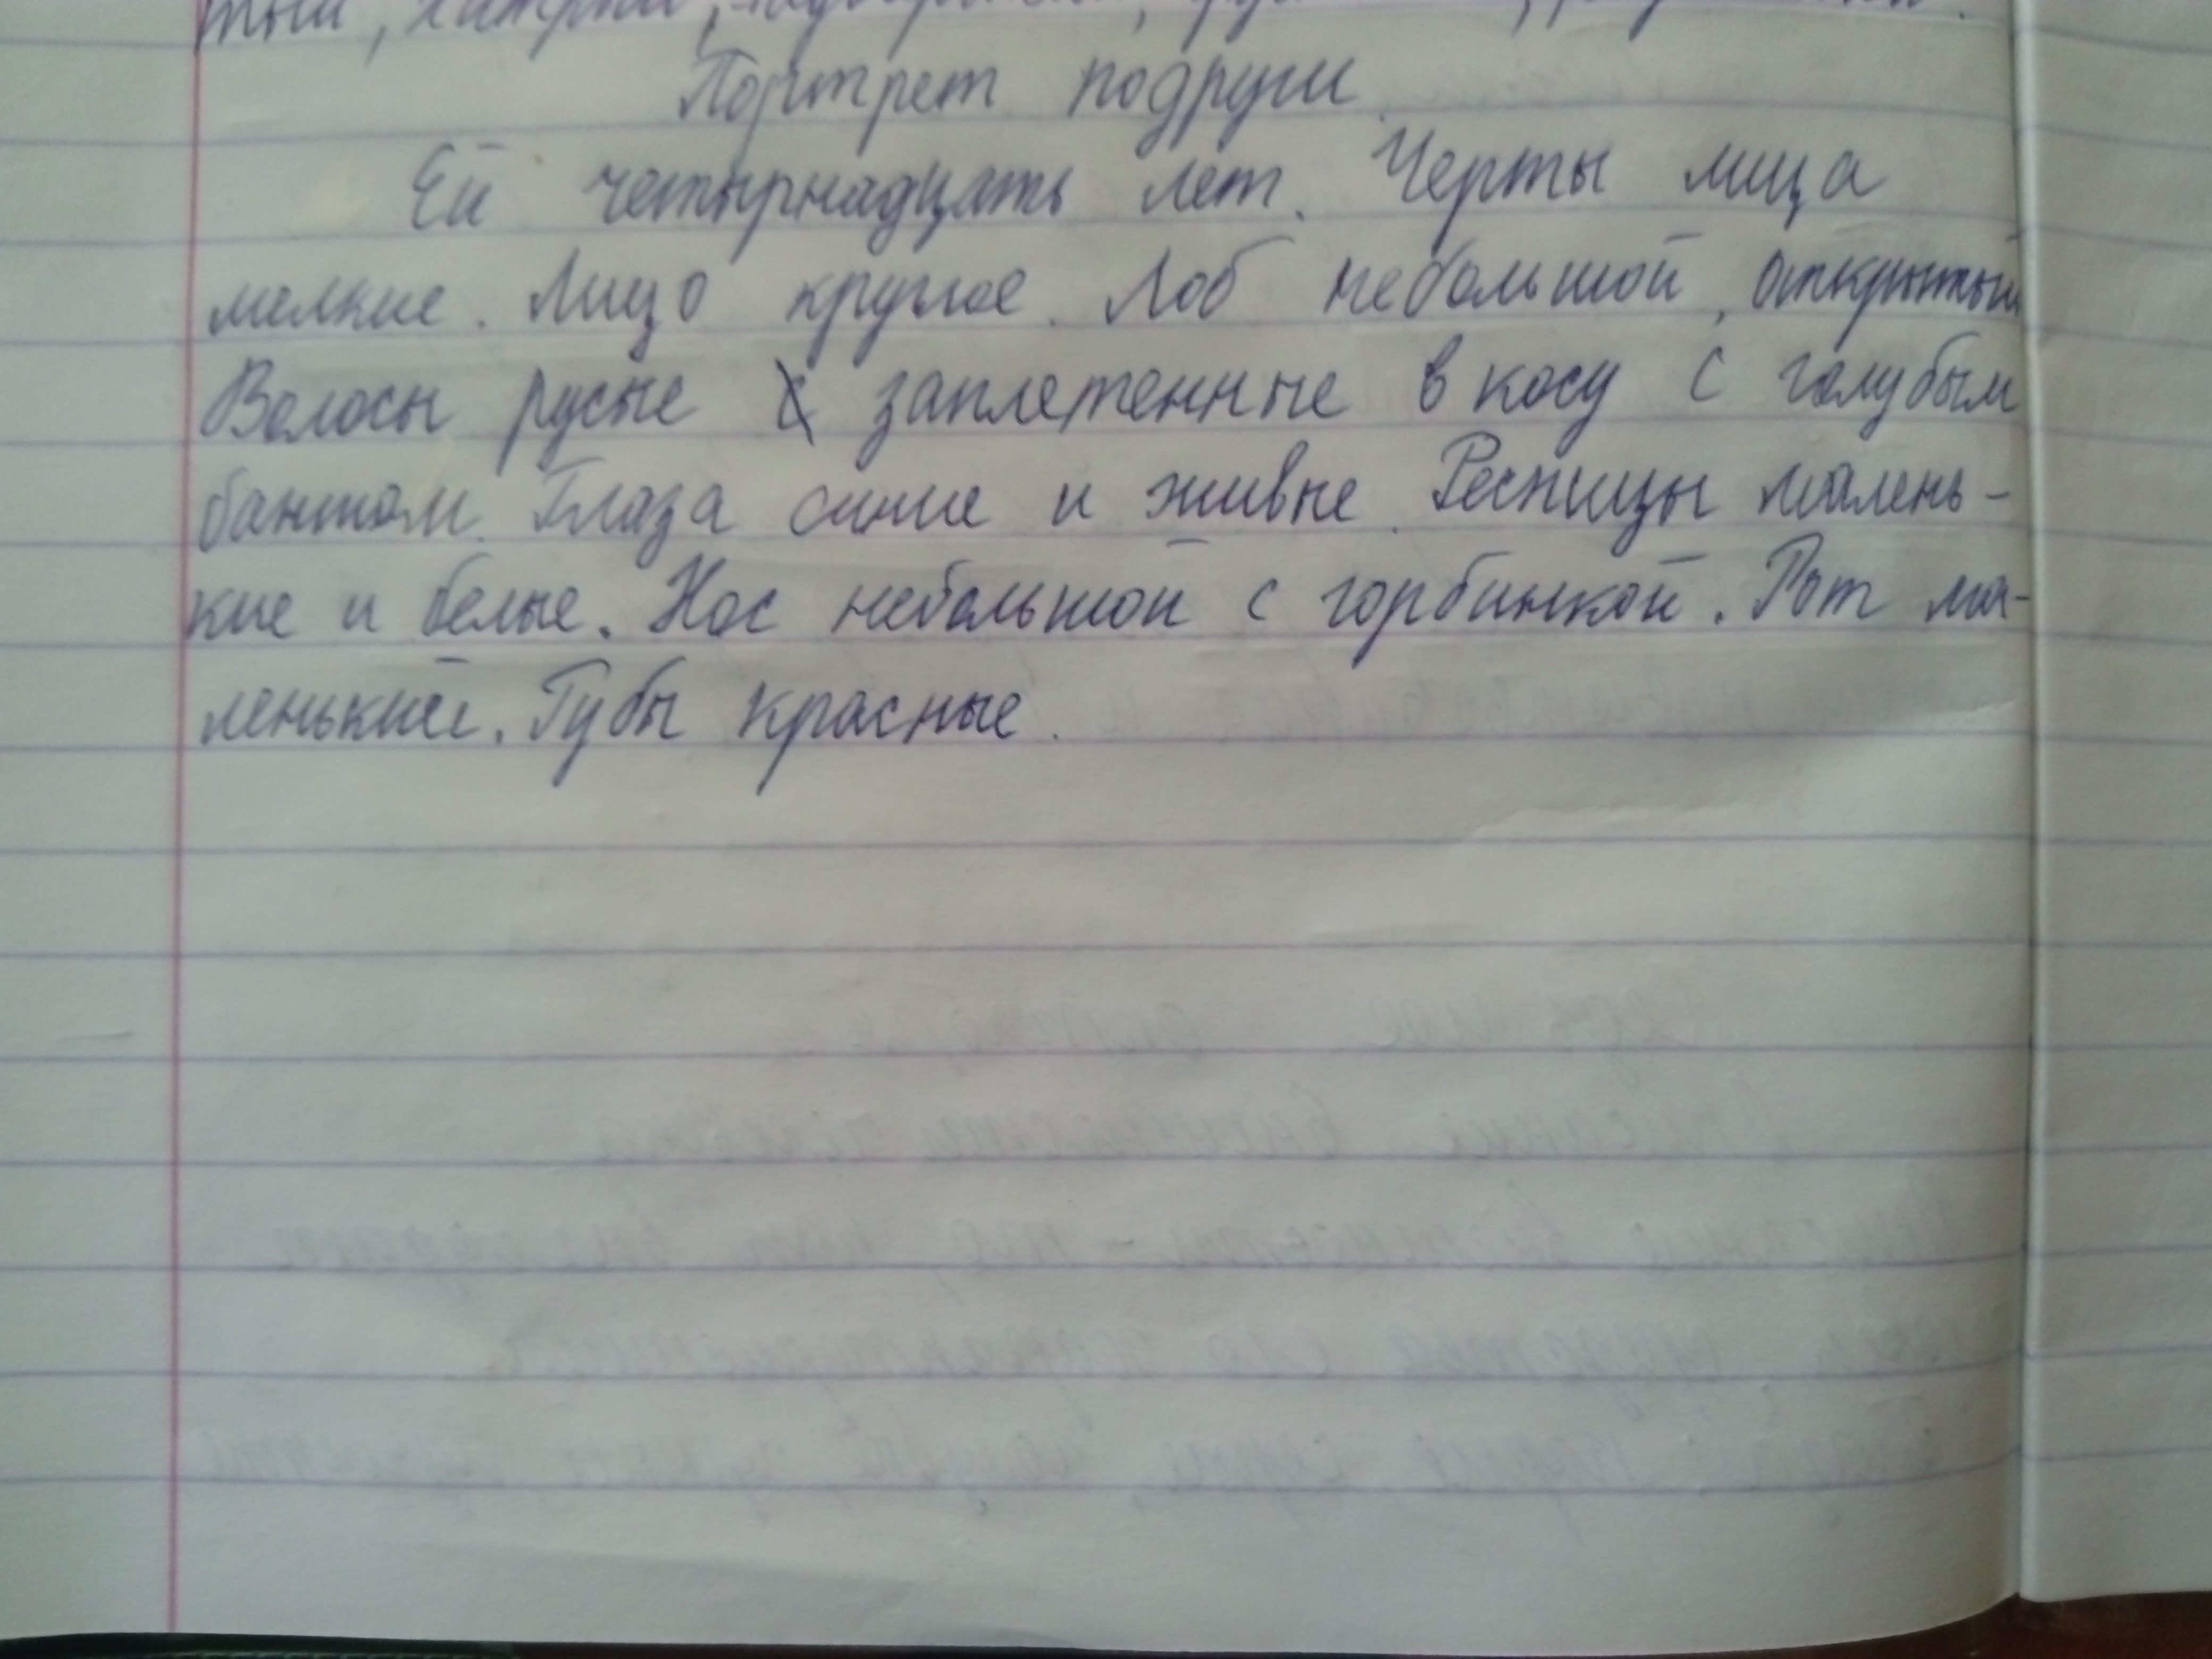 тый, хитрый,
Портрет подруги.
Ей четырнадцать лет. Черты лица
мелкие. Лицо круглое. Лоб небольшой, открытый
Волосы русые заплетенные в косу с голубым
бантом. Глаза синие и живые. Ресницы малень-
кие и белые. Нос небольшой с горбинкой. Рот ма-
ленький. Губы красные.